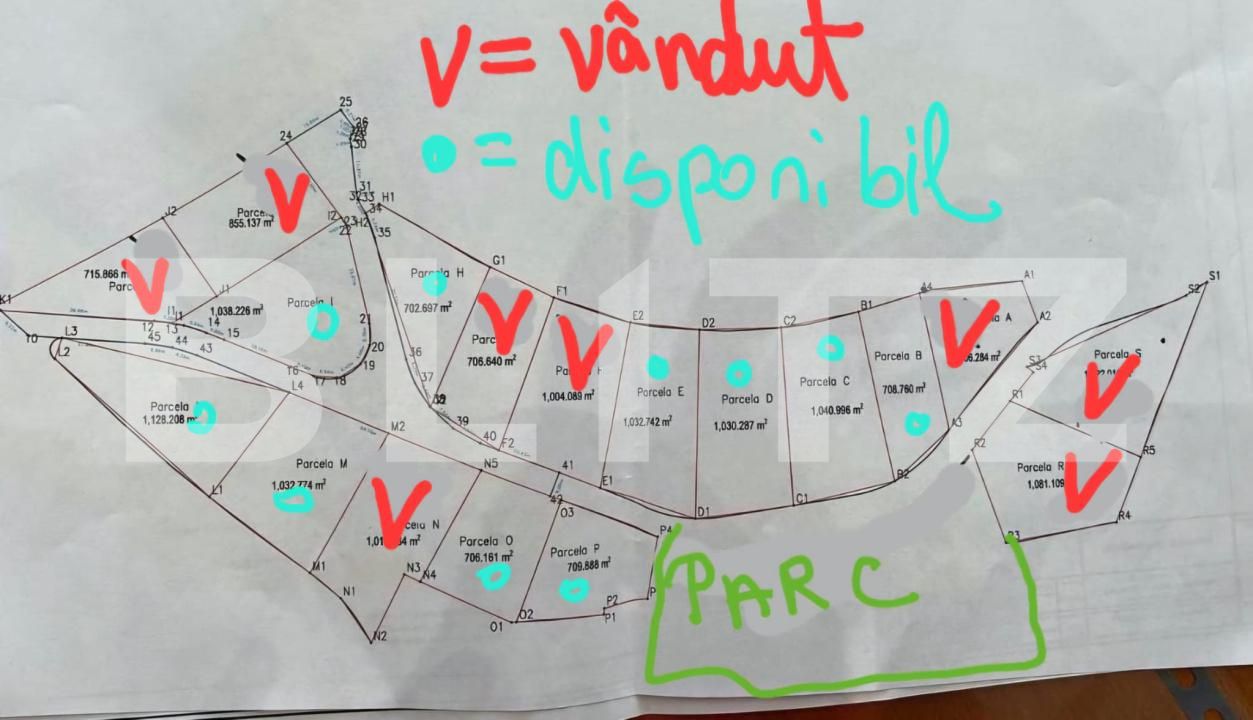 V = vândut
= disponibil
BLITZ
25
24
30
31
33
34
H1
35
J2
I2
H2
22
855.137 m²
V
715.866 m
V
K1
J1
1,038.226 m²
Parcela I
12
13
14
15
45
44
43
L3
L2
L4
17
18
19
20
21
1,128.208 m²
L1
Parcela H
702.697 m²
36
37
39
40
F2
41
G1
V
706.640 m²
F1
V
1,004.089 m²
E2
Parcela E
1,032.742 m²
E1
D2
Parcela D
1,030.287 m²
D1
C2
Parcela C
1,040.996 m²
C1
B1
Parcela B
708.760 m²
B2
A1
A2
A3
V
A
6.284 m²
S1
S2
S3
S4
Parcela S
V
R1
R2
R5
Parcela R
1,081.109
V
R4
R3
M2
Parcela M
1,032.774 m²
M1
N5
V
N
N1
N2
N3
N4
Parcela O
706.161 m²
O1
O2
O3
Parcela P
709.888 m²
P4
P2
P1
PARC